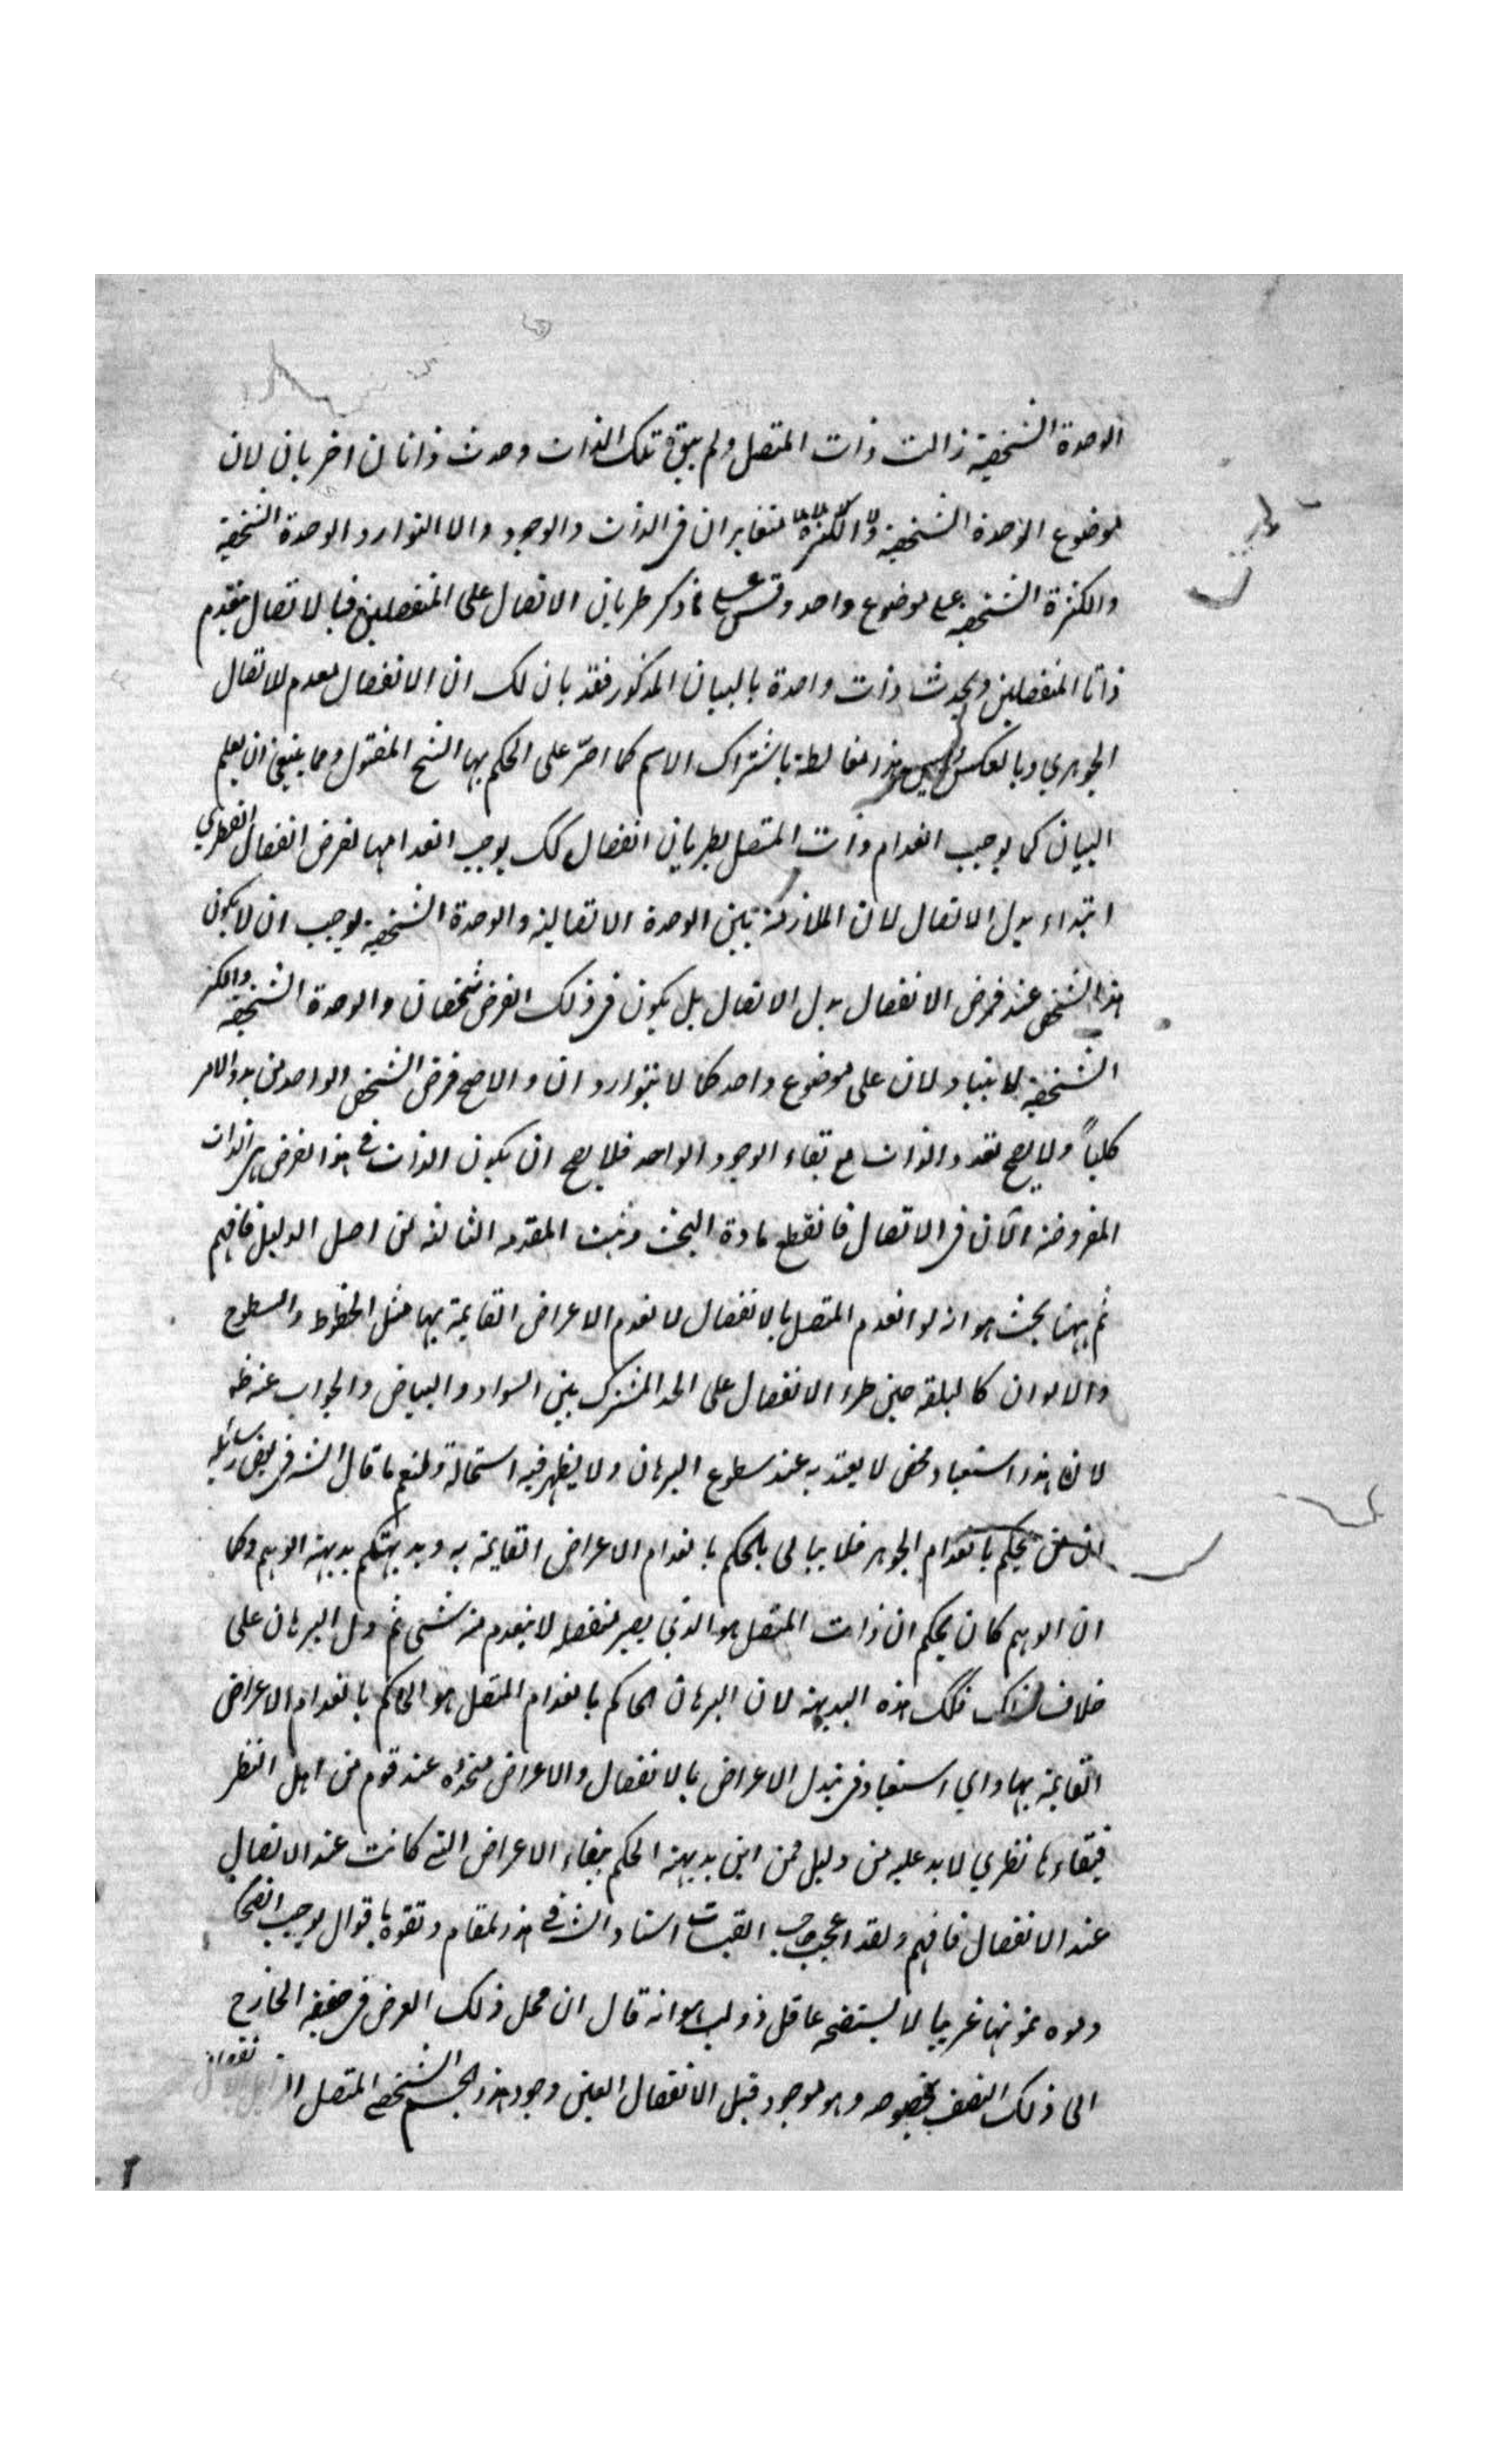 الوحدة الشخصية زالت ذات المتصل ولم يبق تلك الذات وحدث ذاتان اخريان لان
موضوع الوحدة الشخصية والكثرة متغايران في الذات والوجود والا لتوارد الوحدة الشخصية
والكثرة الشخصية على موضوع واحد وقس على ما ذكر طريان الاتصال على المنفصلين فبالاتصال ينعدم
ذاتا المنفصلين ويحدث ذات واحدة بالبيان المذكور فقد بان لك ان الانفصال معدم للاتصال
الجوهري وبالعكس وليس هذا مغالطة باشتراك الاسم كما اصر على الحكم بها الشيخ المقتول ومما ينبغي ان يعلم
البيان كما يوجب انعدام ذات المتصل بطريان انفصال كك يوجب انعدامها لفرض انفصال الفطري
ابتداء بدل الاتصال لان الملازمة بين الوحدة الاتصالية والوحدة الشخصية يوجب ان لا يكون
هذا الشخص عند فرض الانفصال بدل الاتصال بل يكون في ذلك الفرض شخصان والوحدة الشخصية والكثرة
الشخصية لا يتبادلان على موضوع واحد كما لا يتواردان والا صح فرض الشخص الواحد من بدو الامر
كليا ولا يصح تعدد الذات مع بقاء الوجود الواحد فلا يصح ان يكون الذات في هذا الفرض هي الذات
المفروضة الآن في الاتصال فانقطع مادة البحث وثبت المقدمة الثالثة من اصل الدليل فافهم
ثم ههنا بحث هو انه لو انعدم المتصل بالانفصال لانعدم الاعراض القايمة بها مثل الخطوط والسطوح
والالوان كالبلقة حين طرء الانفصال على الحد المشترك بين السواد والبياض والجواب عنه ظ
لان هذا استبعاد محض لا يعتد به عند سطوع البرهان ولا يظهر فيه استحالة ولنعم ما قال الش في بعض رسائله
ان من يحكم بانعدام الجوهر فلا يبالي بالحكم بانعدام الاعراض القايمة به وبديهتكم بديهة الوهم وكما
ان الوهم كان يحكم ان ذات المتصل هو الذي يصير منفصلا لا ينعدم منه شئ ثم دل البرهان على
خلاف ذلك فكك هذه البديهة لان البرهان الحاكم بانعدام المتصل هو الحاكم بانعدام الاعراض
القايمة بها واي استبعاد في تبدل الاعراض بالانفصال والاعراض متجددة عند قوم من اهل النظر
فبقاءها نظري لا بد عليه من دليل فمن اين بديهة الحكم ببقاء الاعراض التي كانت عند الاتصال
عند الانفصال فافهم ولقد اعجب صاحب القبسات استاد الش في هذا المقام وتفوه باقوال يوجب
وموه تمويها غريبا لا يستضحه عاقل ذو لب هو انه قال ان محمل ذلك العرض في حقيقة الخارج
الى ذلك النصف بخصوصه وهو موجود قبل الانفصال لعين وجود هذا الجسم الشخصي المتصل